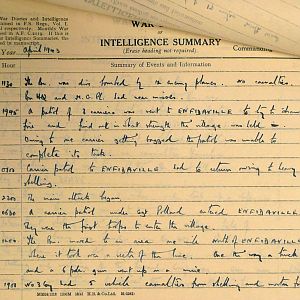 War Diaries and Intelligence
ined in F.S. Regs., Vol. I.
respectively. Monthly War
ed in A.F. C2119. If this is
ntelligence Summaries, the
d in manuscript.
WAR
or
INTELLIGENCE SUMMARY
(Erase heading not required).
Year April 1943
Commanding
Hour
Summary of Events and Information
1130 The Bn. was dive bombed by enemy planes. No casualties.
Bn HQ and M.G. Pl. had near misses.
1945 A patrol of 3 carriers was sent to ENFIDAVILLE to try to draw
fire and find out in what strength the village was held.
Owing to one carrier getting bogged the patrol was unable to
complete its task.
Carrier patrol to ENFIDAVILLE had to return owing to heavy
shelling.
The main attack began.
A carrier patrol under Sgt Pollard entered ENFIDAVILLE
They were the first troops to enter the village.
The Bn. moved to an area one mile north of ENFIDAVILLE
There it took over a sector of the line. One the way a truck
and a 6 pdr. gun went up on a mine.
No 3 Coy had 5 vehicle casualties from shelling and mortar